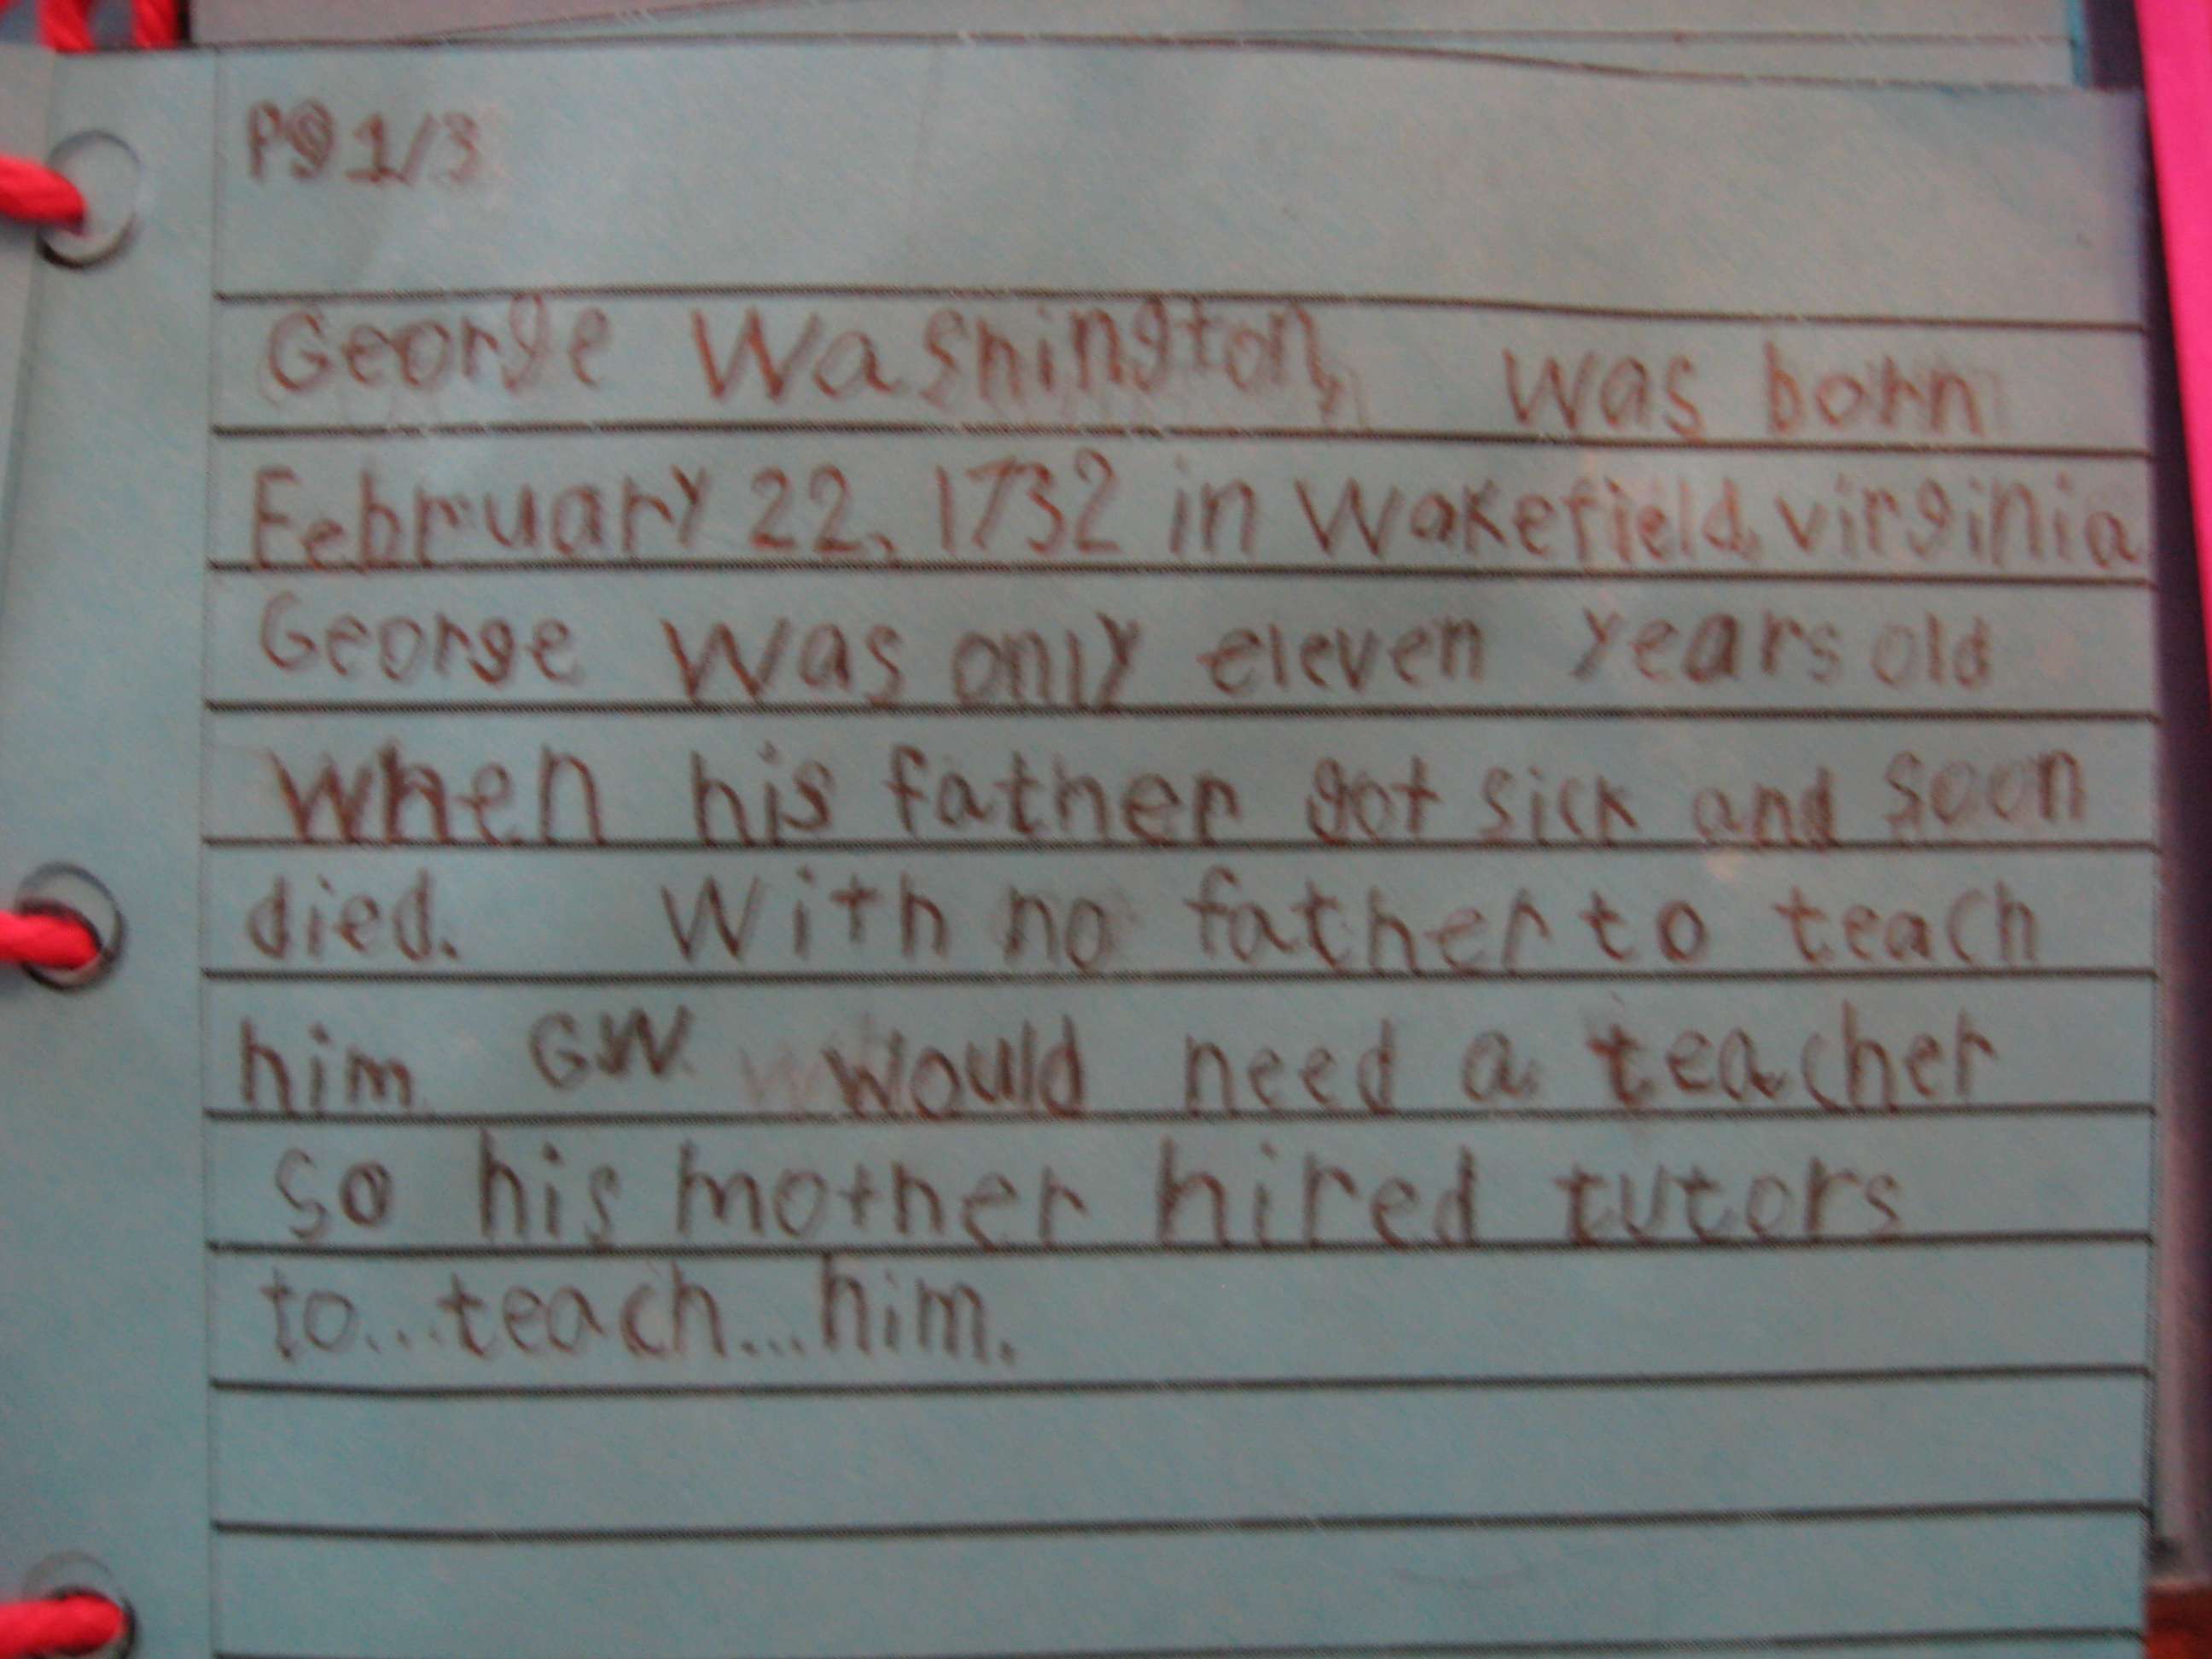 Pg 1/3
George Washington, was born
February 22, 1732 in Wakefield, virginia
George was only eleven years old
when his father got sick and soon
died. With no father to teach
him GW. would need a teacher
so his mother hired tutors
to...teach...him.